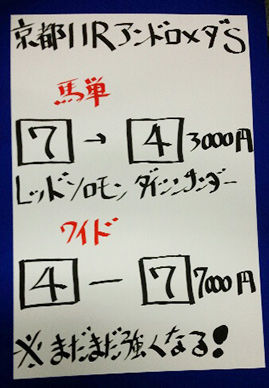 京都11RアンドロメダS
馬単
7 → 4 3000円
レッドソロモン ダイシンサンダー
ワイド
4 ― 7 7000円
※まだまだ強くなる!